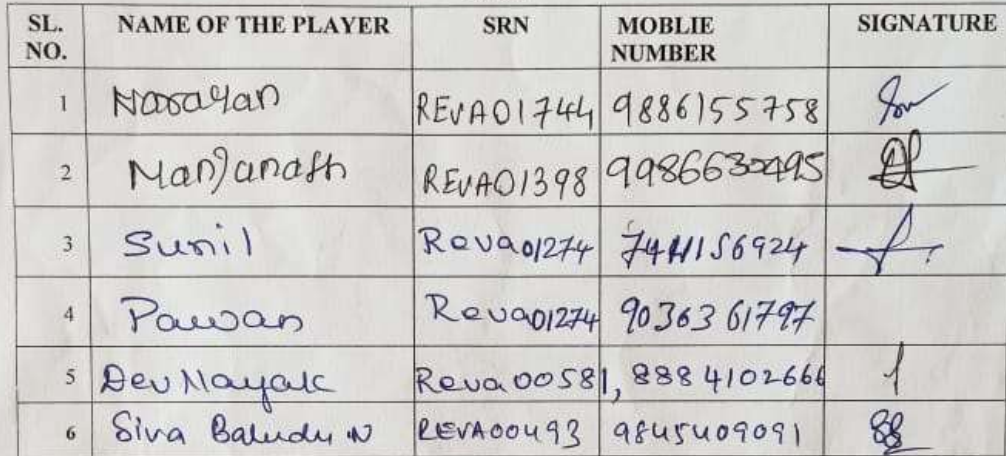 SL. NO. NAME OF THE PLAYER SRN MOBLIE NUMBER SIGNATURE
1 Narayan REVA01744 9886155758
2 Manjunath REVA01398 9986630495
3 Sunil Reva01274 7411156924
4 Pawan Reva01274 9036361797
5 Dev Nayak Reva00581, 8884102666
6 Siva Baludu N REVA00493 9845409091